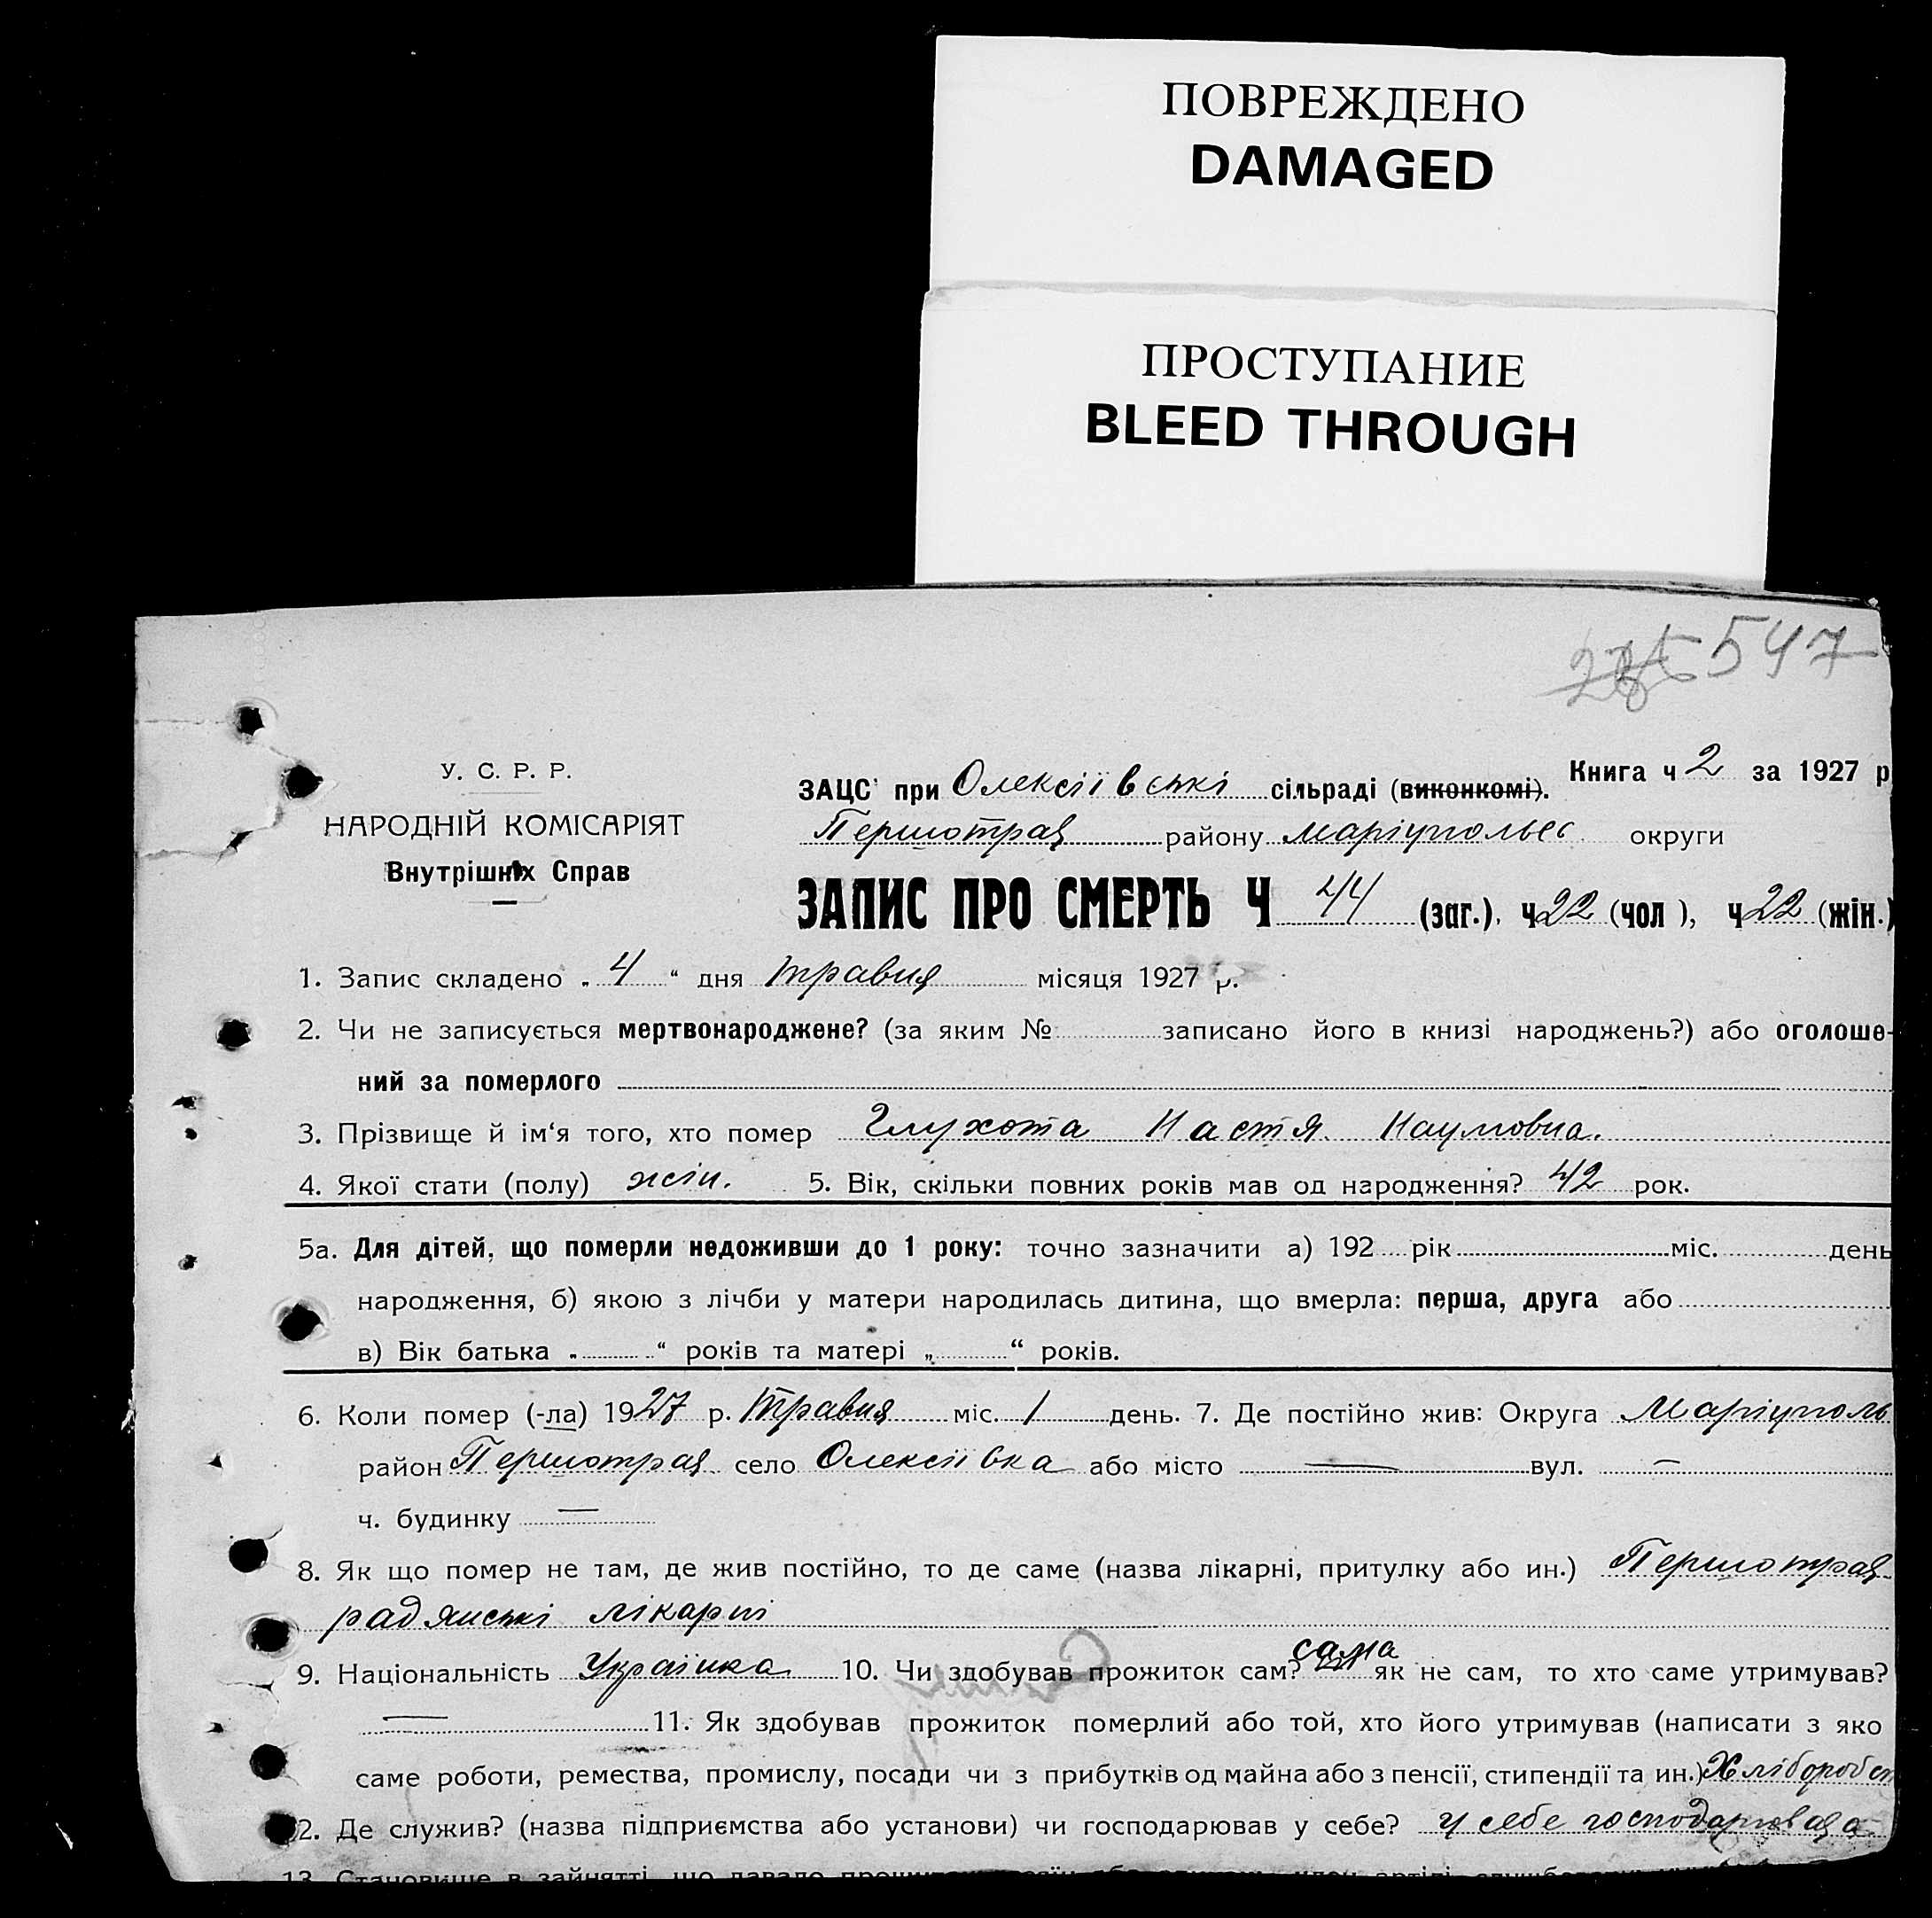 ПОВРЕЖДЕНО
DAMAGED
ПРОСТУПАНИЕ
BLEED THROUGH
547
У. С. Р. Р.
НАРОДНІЙ КОМІСАРІЯТ
Внутрішніх Справ
Книга ч 2 за 1927 р
ЗАЦС при Олексіївські сільраді (виконкомі).
Першотрав району Маріупольс округи
ЗАПИС ПРО СМЕРТЬ Ч 44 (заг.), ч 22 (чол ), ч 22 (жін.)
1. Запис складено „ 4 “ дня травня місяця 1927 р.
2. Чи не записується мертвонароджене? (за яким № записано його в книзі народжень?) або оголоше-
ний за померлого
3. Прізвище й ім‘я того, хто помер Глухота Настя Наумовна.
4. Якої стати (полу) жін. 5. Вік, скільки повних років мав од народження? 42 рок.
5а. Для дітей, що померли недоживши до 1 року: точно зазначити а) 192 рік міс. день
народження, б) якою з лічби у матери народилась дитина, що вмерла: перша, друга або
в) Вік батька „ “ років та матері „ “ років.
6. Коли помер (-ла) 1927 р. Травня міс. 1 день. 7. Де постійно жив: Округа Маріуполь
район Першотрав село Олексіївка або місто — вул. —
ч. будинку —
8. Як що помер не там, де жив постійно, то де саме (назва лікарні, притулку або ин.) Першотрав
радянські лікарні
9. Національність Українка 10. Чи здобував прожиток сам? сама як не сам, то хто саме утримував?
— 11. Як здобував прожиток померлий або той, хто його утримував (написати з яко
саме роботи, ремества, промислу, посади чи з прибутків од майна або з пенсії, стипендії та ин.) Хлібороб
2. Де служив? (назва підприємства або установи) чи господарював у себе? у себе
13. Становище в зайнятті, що давало